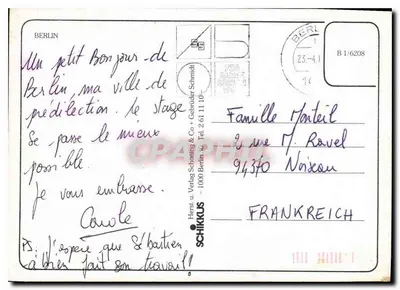 BERLIN
Un petit Bonjour de
Berlin, ma ville de
prédilection. le stage
Se passe le mieux
possible.
Je vous embrasse.
Carole
PS J'espère que Sébastien
a bien fait son travail!
Herst. u. Verlag Schöning & Co + Gebrüder Schmidt
1000 Berlin Tel. 2 61 11 10
SCHIKKUS
BERLIN
B 1/6208
Famille Monteil
2 rue M. Ravel
94370 Noiseau
FRANKREICH